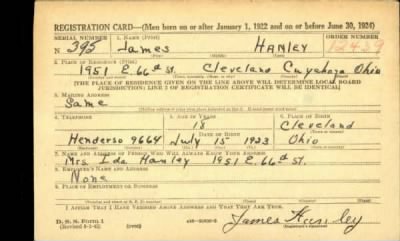 REGISTRATION CARD—(Men born on or after January 1, 1922 and on or before June 30, 1924)
SERIAL NUMBER 1. NAME (Print) ORDER NUMBER
N 395 James Hanley 12439
2. PLACE OF RESIDENCE (Print)
1951 E. 66th St. Cleveland Cuyahoga Ohio
[THE PLACE OF RESIDENCE GIVEN ON THE LINE ABOVE WILL DETERMINE LOCAL BOARD
JURISDICTION; LINE 2 OF REGISTRATION CERTIFICATE WILL BE IDENTICAL]
3. MAILING ADDRESS
Same
4. TELEPHONE 5. AGE IN YEARS 6. PLACE OF BIRTH
18 Cleveland
DATE OF BIRTH
Henderso 9664 July 15 1923 Ohio
7. NAME AND ADDRESS OF PERSON WHO WILL ALWAYS KNOW YOUR ADDRESS
Mrs Ida Hanley 1951 E. 66th St.
8. EMPLOYER'S NAME AND ADDRESS
None
9. PLACE OF EMPLOYMENT OR BUSINESS
I AFFIRM THAT I HAVE VERIFIED ABOVE ANSWERS AND THAT THEY ARE TRUE.
D. S. S. FORM 1
James Hanley